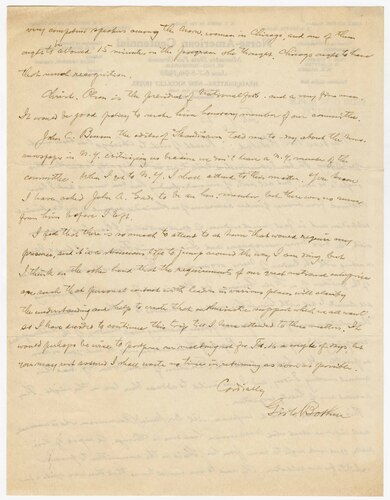 very competent speakers among the Norse women in Chicago, and one of them
ought to have 15 minutes on the program she thought. Chicago ought to have
that much recognition.
Christ. Olsen is the president of and a very fine man.
It would be good policy to make him honorary member of our committee.
John C. the editor of Skandinaven told me to-day about the Norw.
newspaper in N.Y. criticizing us because we don't have a N.Y. member of the
committee. When I get to N.Y. I shall attend to this matter. You know
I have asked John A. to be an hon. member, but there was no answer
from him before I left.
I feel that there is so much to attend to at home that would require my
presence, and it is a strenuous life to jump around the way I am doing, but
I think on the other hand that the requirements of our great national enterprise
are such that personal contact with leaders in various places will clarify
the understanding and help to create that enthusiastic support which we all want,
so I have decided to continue this trip till I have attended to these matters. It
would perhaps be wise to postpone our meeting set for the a couple of days but
you may rest assured I shall waste no time in returning as soon as possible.
Cordially
Gisle Bothne